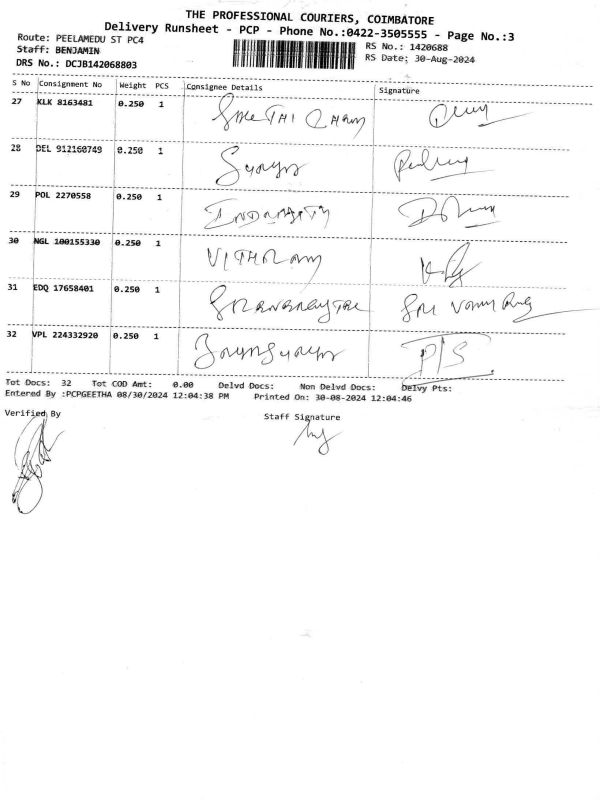 THE PROFESSIONAL COURIERS, COIMBATORE
Delivery Runsheet - PCP - Phone No.:0422-3505555 - Page No.:3
Route: PEELAMEDU ST PC4
RS No.: 1420688
Staff: BENJAMIN
RS Date: 30-Aug-2024
DRS No.: DCJB142068803
S No Consignment No Weight PCS Consignee Details Signature
27 KLK 8163481 0.250 1
28 DEL 912160749 0.250 1
29 POL 2270558 0.250 1
30 NGL 100155330 0.250 1
31 EDQ 17658401 0.250 1
32 VPL 224332920 0.250 1
Tot Docs: 32 Tot COD Amt: 0.00 Delvd Docs: Non Delvd Docs: Delvy Pts:
Entered By :PCPGEETHA 08/30/2024 12:04:38 PM Printed On: 30-08-2024 12:04:46
Verified By
Staff Signature